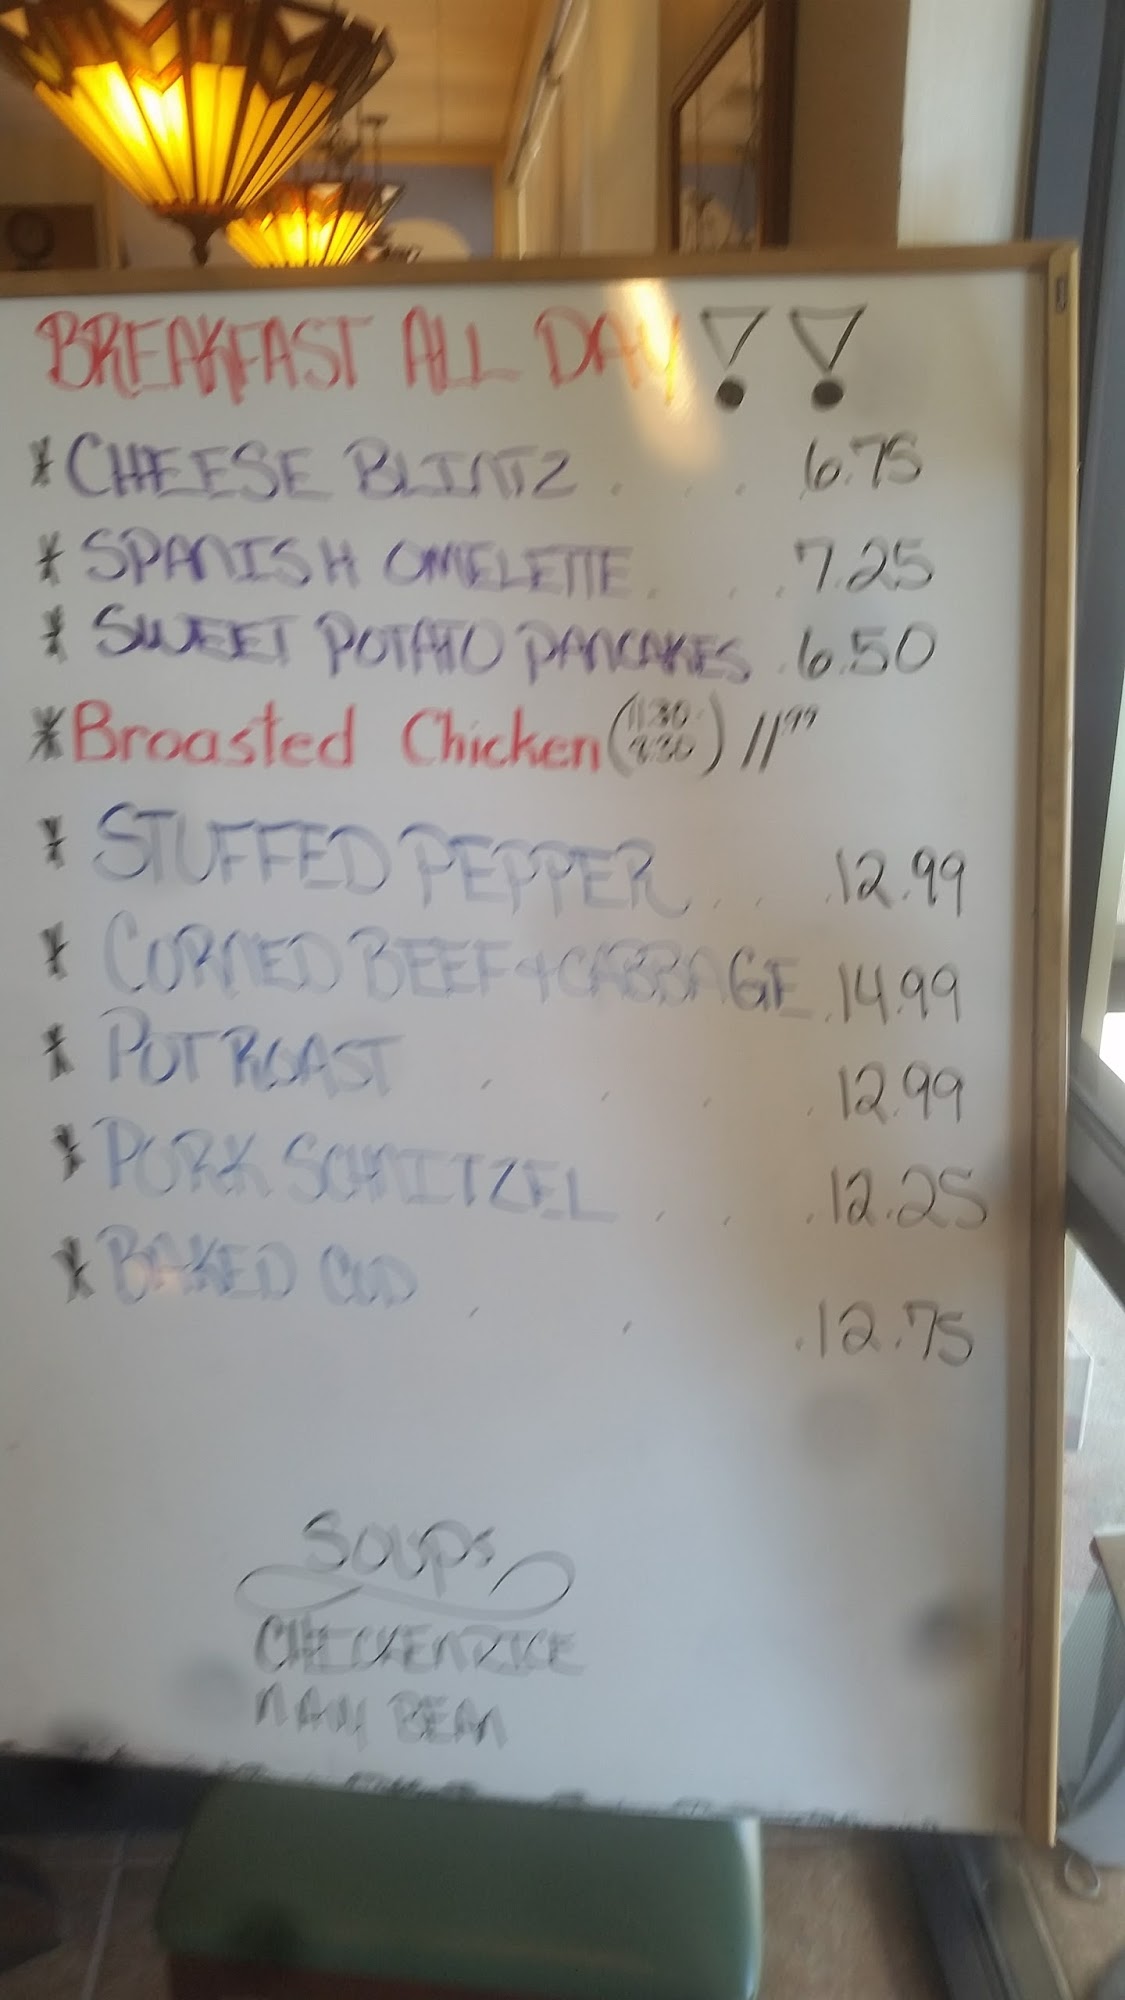 BREAKFAST ALL DAY!!
* CHEESE BLINTZ . . . 6.75
* SPANISH OMELETTE . . . 7.25
* SWEET POTATO PANCAKES . 6.50
* Broasted Chicken (11:30 8:30) 11.99
* STUFFED PEPPER . . . 12.99
* CORNED BEEF + CABBAGE . 14.99
* POT ROAST . . . . 12.99
* PORK SCHNITZEL . . . 12.25
* BAKED COD . . . 12.75
SOUPS
CHICKEN RICE
NAVY BEAN